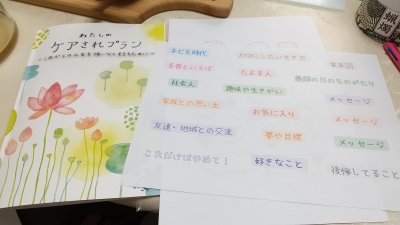 わたしの
ケアされプラン
子ども時代
大切にしたい生き方
家系図
青春といえば
たよる人
趣味や生きがい
社会人
メッセージ
家族との思い出
お気に入り
メッセージ
友達・地域との交流
夢や目標
メッセージ
これだけはやめて！
好きなこと
後悔してること